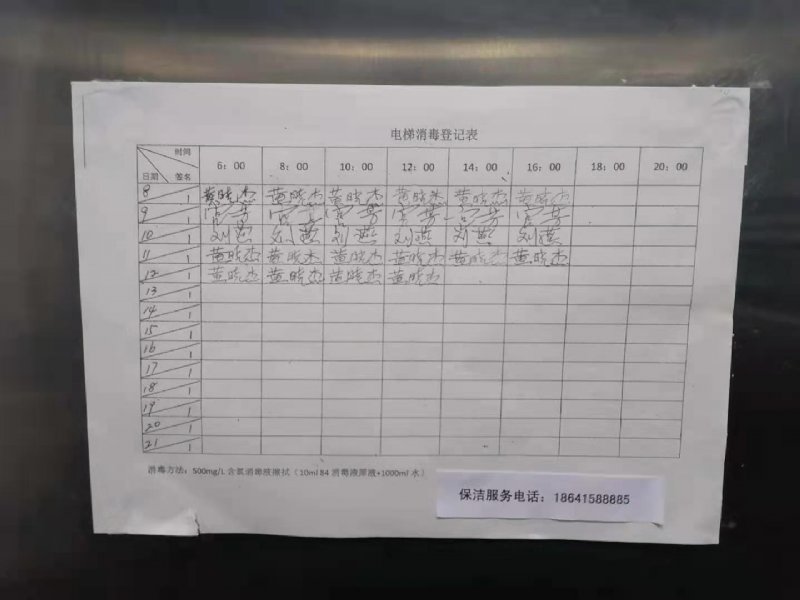 电梯消毒登记表
时间 6：00 8：00 10：00 12：00 14：00 16：00 18：00 20：00
日期 签名
8/1 黄晓杰 黄晓杰 黄晓杰 黄晓杰 黄晓杰 黄晓杰
9/1
10/1 刘燕 刘燕 刘燕 刘燕 刘燕 刘燕
11/1 黄晓杰 黄晓杰 黄晓杰 黄晓杰 黄晓杰 黄晓杰
12/1 黄晓杰 黄晓杰 黄晓杰 黄晓杰
13/1
14/1
15/1
16/1
17/1
18/1
19/1
20/1
21/1
消毒方法：500mg/L 含氯消毒液擦拭（10ml 84 消毒液原液+1000ml 水）
保洁服务电话：18641588885